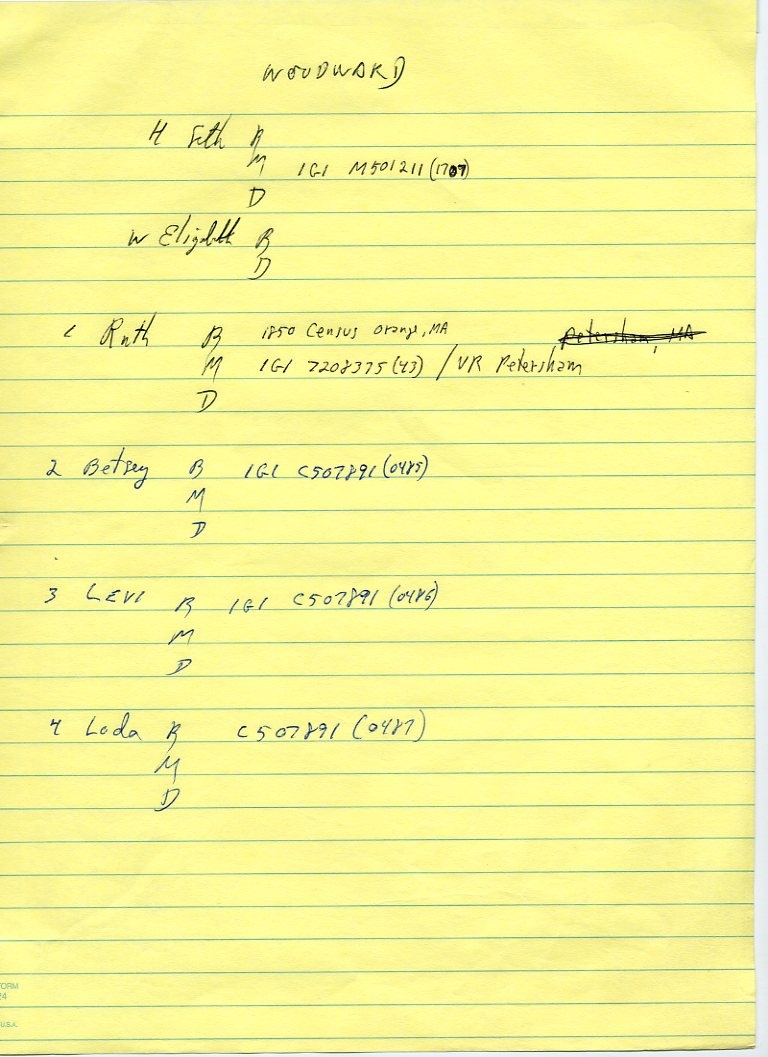 WOODWARD
H Seth B
M IGI M501211 (1707)
D
W Elizabeth B
D
1 Ruth B 1850 Census Orange, MA Petersham, MA
M IGI 7208375 (43) / VR Petersham
D
2 Betsey B IGI C507891 (0485)
M
D
3 LEVI B IGI C507891 (0486)
M
D
4 Loda B C507891 (0487)
M
D
ORM
24
U.S.A.